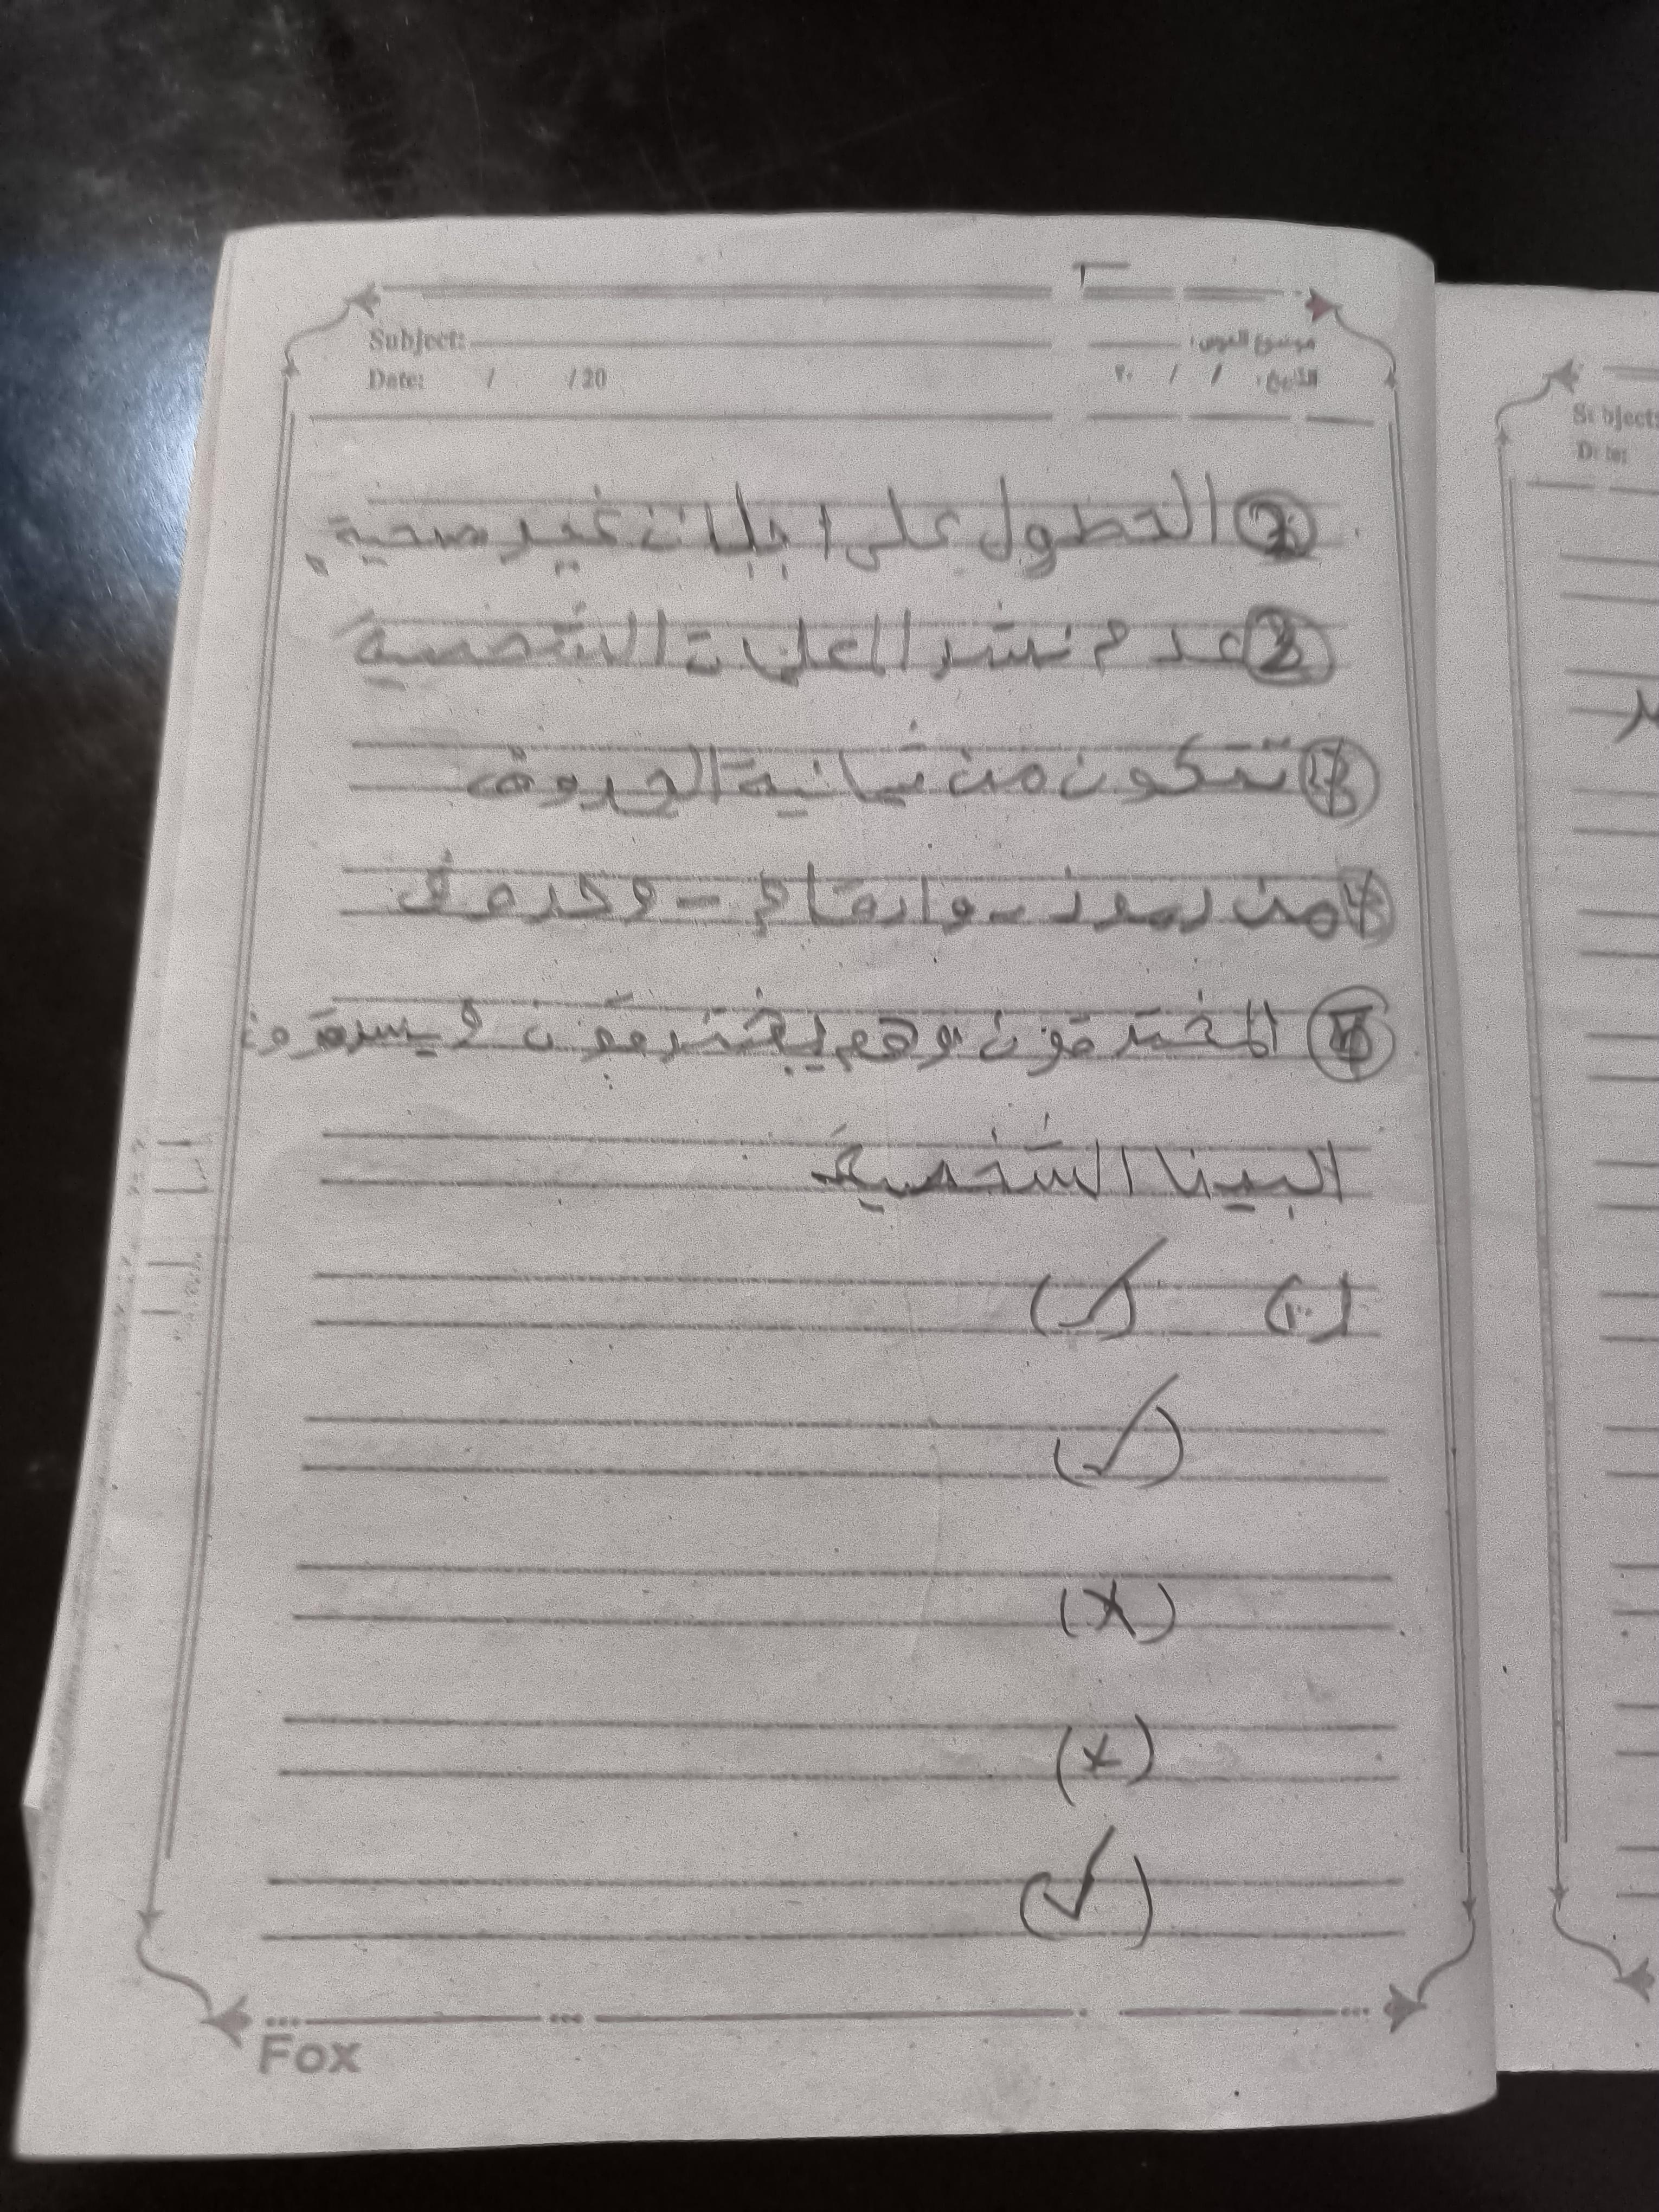 Subject: موضوع الدرس:
Date: / /20 التاريخ: / / ٢٠
② الحطول على اجابات غير صحية
② عدم نشر المعلبات الشخصية
③ تتكون من ثمانية الحروف
④ من رموز - وارقام - وحروف
المخترقون وهم يخترقون ويسرقون
البينا الشخصية
(✓)
(✓)
(x)
(x)
(✓)
Fox
Subject:
Date: